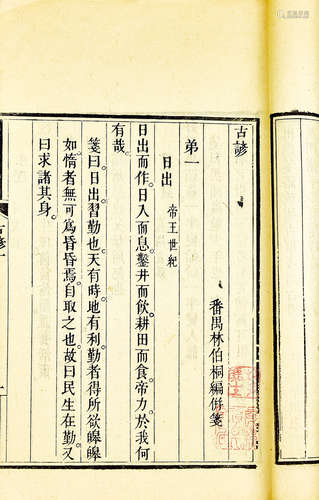 古諺
番禺林伯桐編併箋
弟一
日出 帝王世紀
日出而作。日入而息。鑿井而飲。耕田而食。帝力於我何
有哉。
箋曰。日出習勤也。天有時。地有利。勤者得所欲。皞皞
如。惰者無可爲。昏昏焉。自取之也。故曰民生在勤。又
曰求諸其身。
古諺